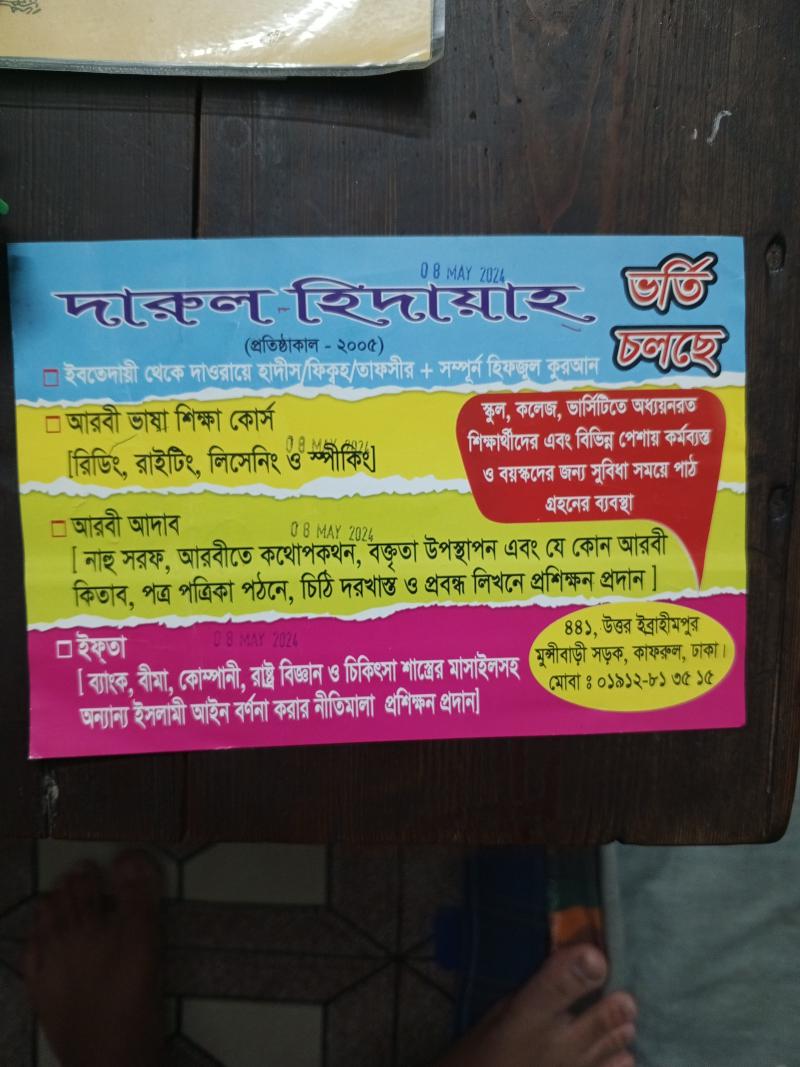 08 MAY 2024
দারুল হিদায়াহ
ভর্তি
চলছে
(প্রতিষ্ঠাকাল - ২০০৫)
□ ইবতেদায়ী থেকে দাওরায়ে হাদীস/ফিক্বহ/তাফসীর + সম্পূর্ন হিফজুল কুরআন
□ আরবী ভাষা শিক্ষা কোর্স
08 MAY 2024
[রিডিং, রাইটিং, লিসেনিং ও স্পীকিং]
স্কুল, কলেজ, ভার্সিটিতে অধ্যয়নরত
শিক্ষার্থীদের এবং বিভিন্ন পেশায় কর্মব্যস্ত
ও বয়স্কদের জন্য সুবিধা সময়ে পাঠ
গ্রহনের ব্যবস্থা
□ আরবী আদাব
08 MAY 2024
[ নাহু সরফ, আরবীতে কথোপকথন, বক্তৃতা উপস্থাপন এবং যে কোন আরবী
কিতাব, পত্র পত্রিকা পঠনে, চিঠি দরখাস্ত ও প্রবন্ধ লিখনে প্রশিক্ষন প্রদান ]
□ ইফ্‌তা
08 MAY 2024
[ ব্যাংক, বীমা, কোম্পানী, রাষ্ট্র বিজ্ঞান ও চিকিৎসা শাস্ত্রের মাসাইলসহ
অন্যান্য ইসলামী আইন বর্ণনা করার নীতিমালা প্রশিক্ষন প্রদান]
৪৪১, উত্তর ইব্রাহীমপুর
মুন্সীবাড়ী সড়ক, কাফরুল, ঢাকা।
মোবা ঃ ০১৯১২-৮১ ৩৫ ১৫